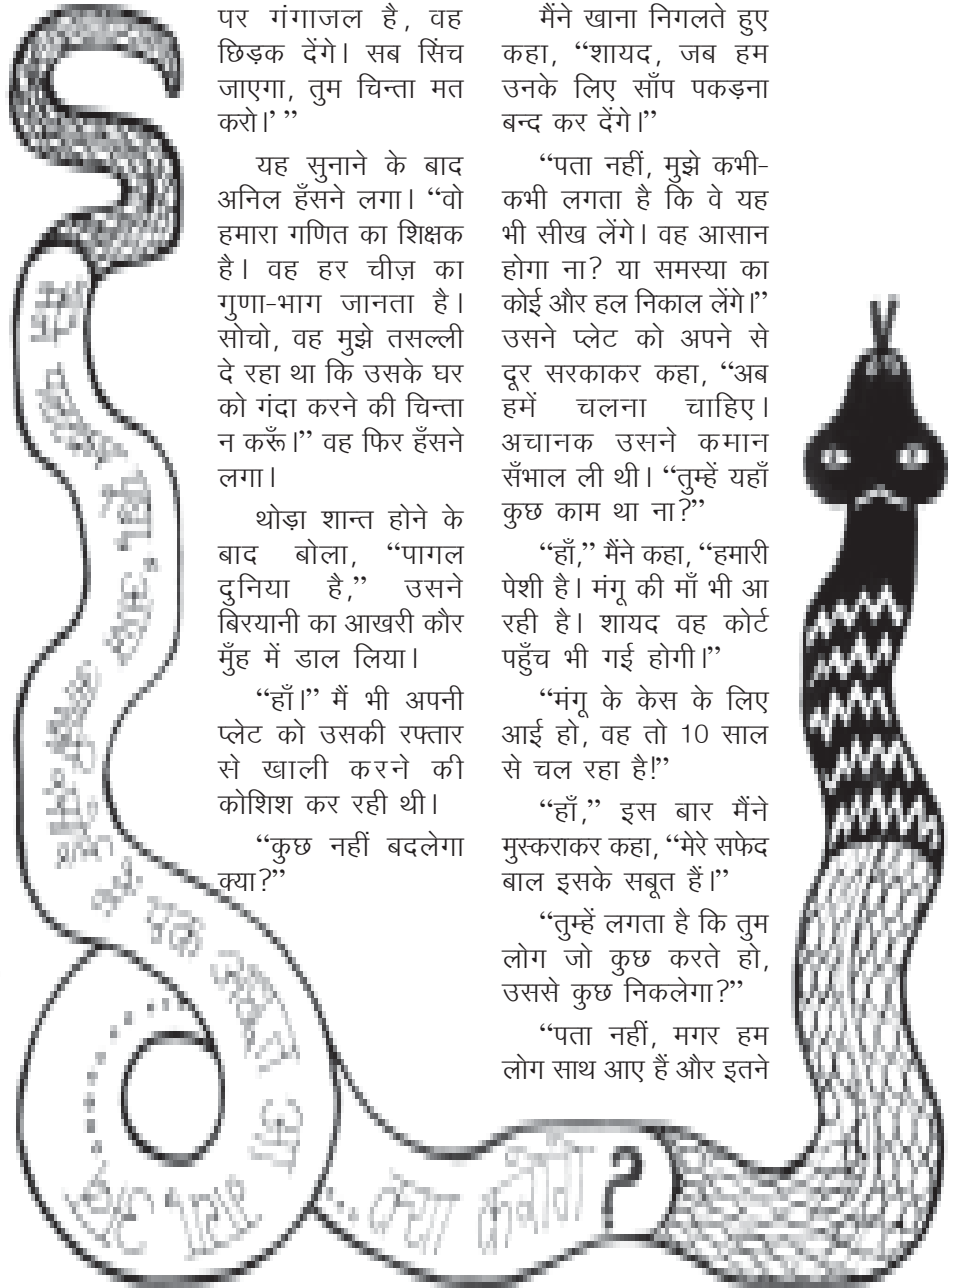 पर गंगाजल है, वह
छिड़क देंगे। सब सिंच
जाएगा, तुम चिन्ता मत
करो।’ ”
यह सुनाने के बाद
अनिल हँसने लगा। “वो
हमारा गणित का शिक्षक
है। वह हर चीज़ का
गुणा-भाग जानता है।
सोचो, वह मुझे तसल्ली
दे रहा था कि उसके घर
को गंदा करने की चिन्ता
न करूँ।” वह फिर हँसने
लगा।
थोड़ा शान्त होने के
बाद बोला, “पागल
दुनिया है,” उसने
बिरयानी का आखरी कौर
मुँह में डाल लिया।
“हाँ।” मैं भी अपनी
प्लेट को उसकी रफ्तार
से खाली करने की
कोशिश कर रही थी।
“कुछ नहीं बदलेगा
क्या?”
मैंने खाना निगलते हुए
कहा, “शायद, जब हम
उनके लिए साँप पकड़ना
बन्द कर देंगे।”
“पता नहीं, मुझे कभी-
कभी लगता है कि वे यह
भी सीख लेंगे। वह आसान
होगा ना? या समस्या का
कोई और हल निकाल लेंगे।”
उसने प्लेट को अपने से
दूर सरकाकर कहा, “अब
हमें चलना चाहिए।
अचानक उसने कमान
सँभाल ली थी। “तुम्हें यहाँ
कुछ काम था ना?”
“हाँ,” मैंने कहा, “हमारी
पेशी है। मंगू की माँ भी आ
रही है। शायद वह कोर्ट
पहुँच भी गई होगी।”
“मंगू के केस के लिए
आई हो, वह तो 10 साल
से चल रहा है!”
“हाँ,” इस बार मैंने
मुस्कराकर कहा, “मेरे सफेद
बाल इसके सबूत हैं।”
“तुम्हें लगता है कि तुम
लोग जो कुछ करते हो,
उससे कुछ निकलेगा?”
“पता नहीं, मगर हम
लोग साथ आए हैं और इतने
क्या
?